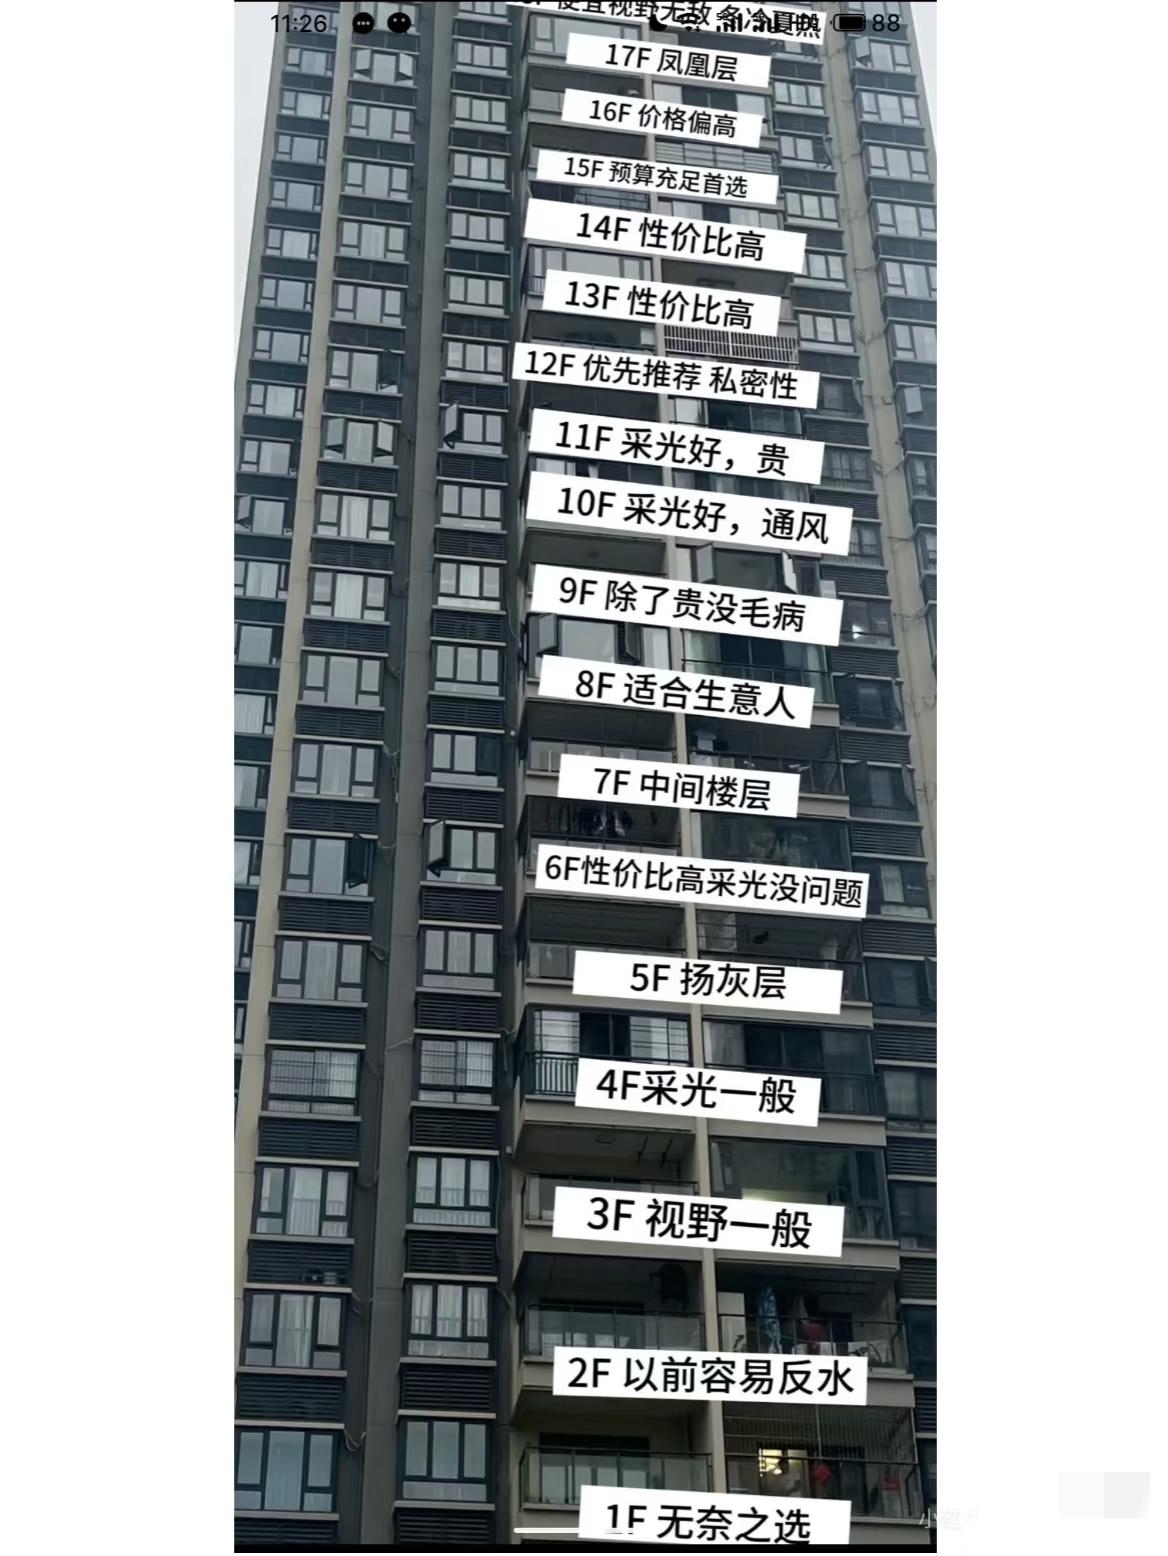 11:26
88
便宜视野无敌 冬冷夏热
17F 凤凰层
16F 价格偏高
15F 预算充足首选
14F 性价比高
13F 性价比高
12F 优先推荐 私密性
11F 采光好，贵
10F 采光好，通风
9F 除了贵没毛病
8F 适合生意人
7F 中间楼层
6F性价比高采光没问题
5F 扬灰层
4F采光一般
3F 视野一般
2F 以前容易反水
1F 无奈之选
小红